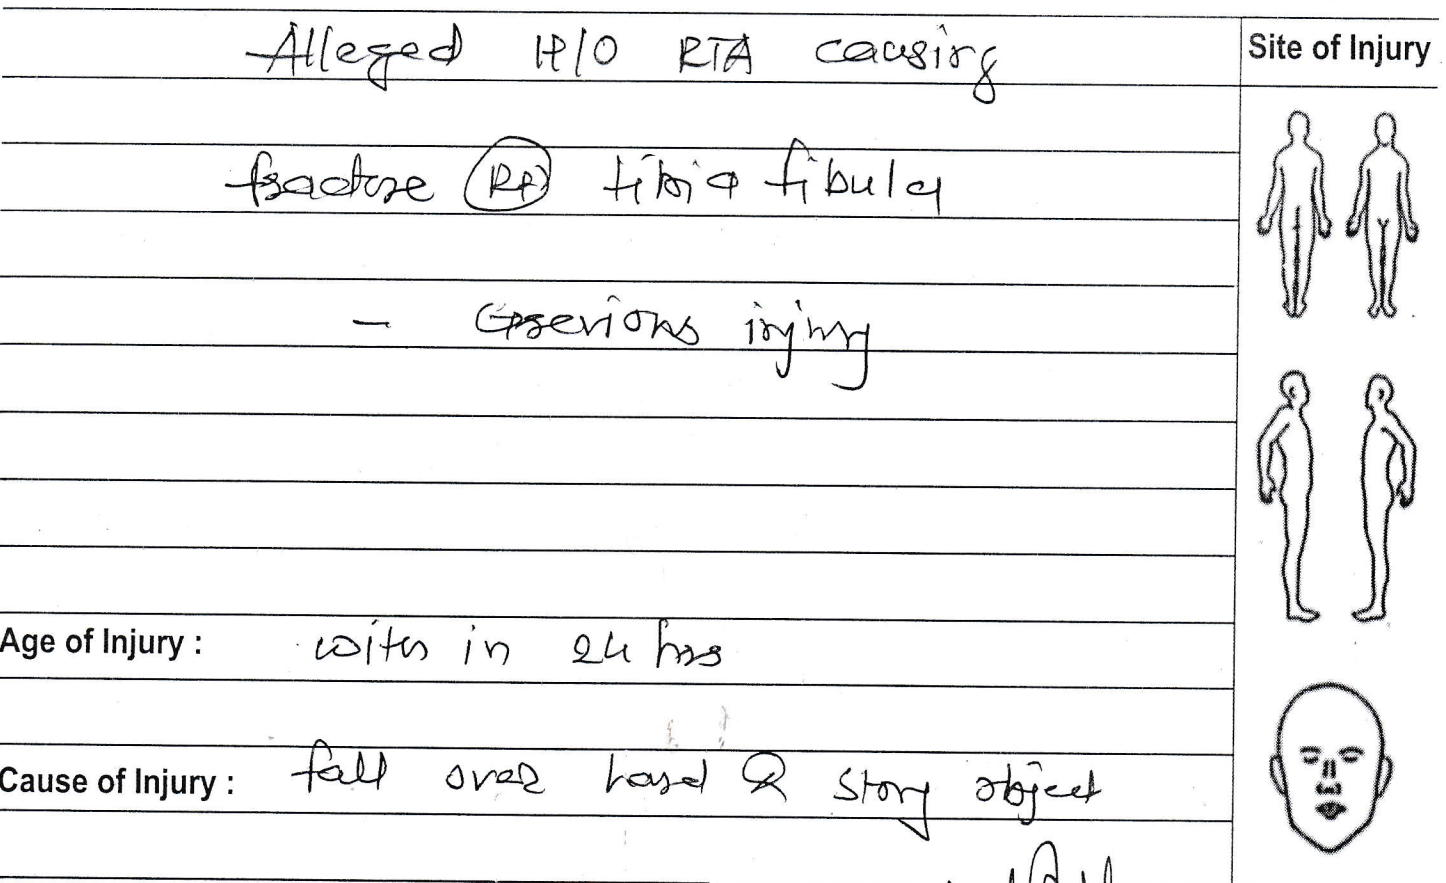 Alleged H/O RTA causing
Site of Injury
fracture Rt tibia fibula
- Grevious injury
Age of Injury : within 24 hrs
Cause of Injury : fall over hard & stony object